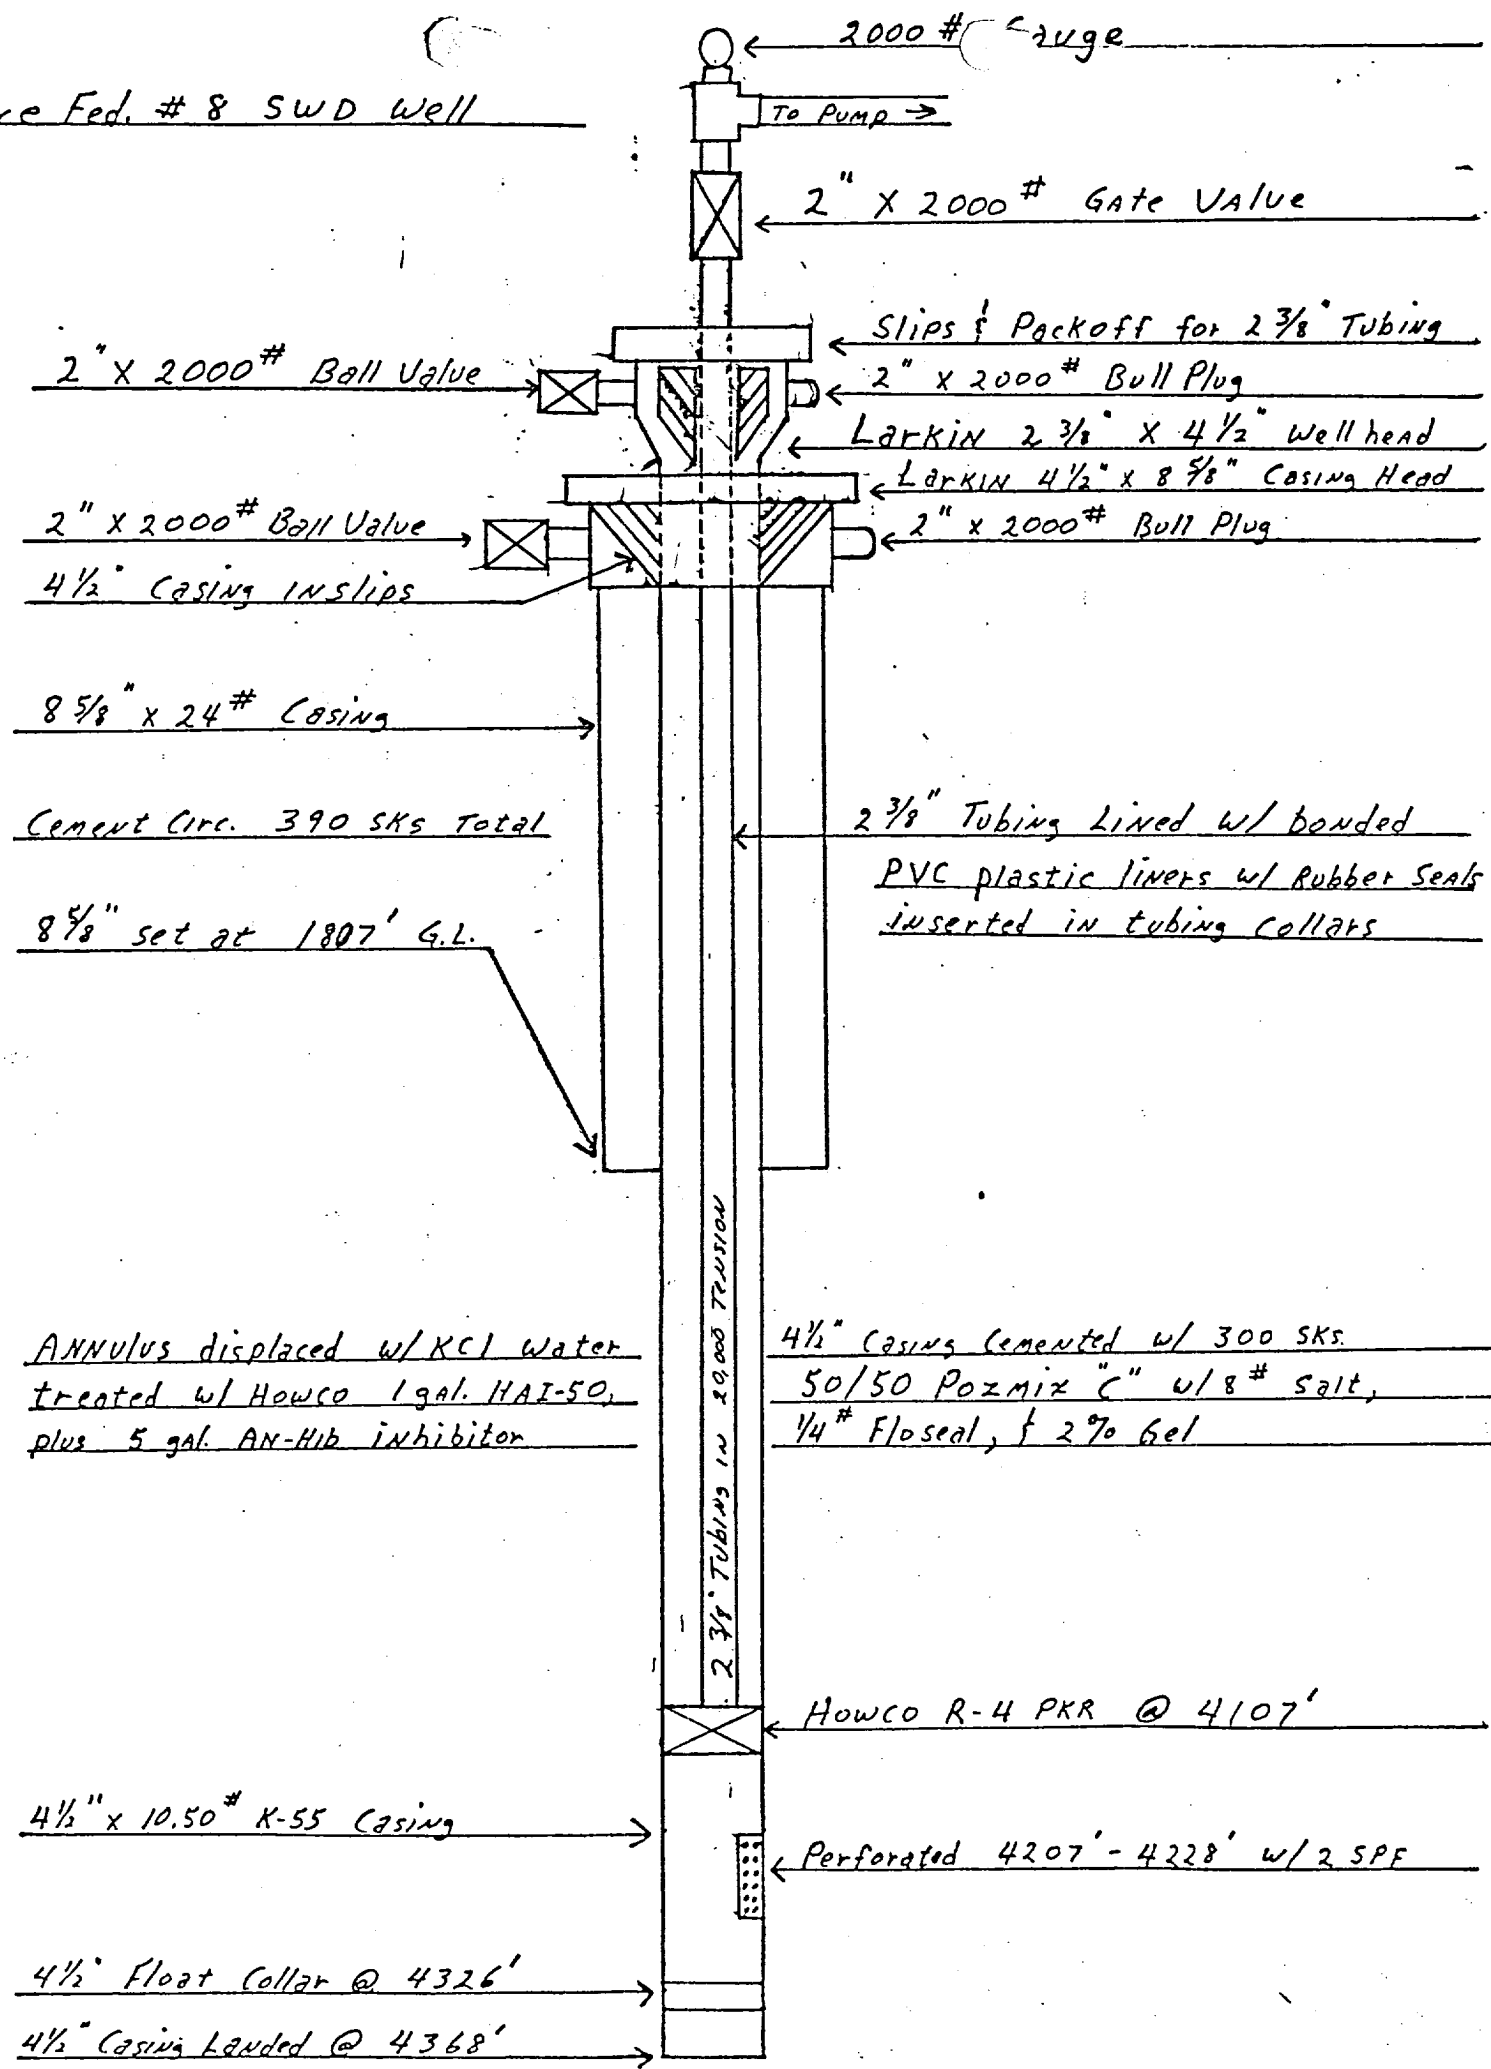 2000 #
Fed. # 8 SWD Well
To Pump →
2" X 2000 # Gate Valve
Slips & Packoff for 2 3/8" Tubing
2" X 2000 # Ball Valve
2" X 2000 # Bull Plug
Larkin 2 3/8" X 4 1/2" Wellhead
Larkin 4 1/2" X 8 5/8" Casing Head
2" X 2000 # Ball Valve
2" X 2000 # Bull Plug
4 1/2" Casing in slips
8 5/8" X 24 # Casing
Cement Circ. 390 SKs Total
2 3/8" Tubing Lined w/ bonded
PVC plastic liners w/ Rubber Seals
inserted in tubing collars
8 5/8" set at 1807' G.L.
2 3/8" Tubing in 20,000 Tension
Annulus displaced w/ KCl Water
treated w/ Howco 1 gal. HAI-50,
plus 5 gal. AN-Hib inhibitor
4 1/2" Casing Cemented w/ 300 SKs.
50/50 Pozmix "C" w/ 8 # Salt,
1/4 # Floseal, & 2% Gel
Howco R-4 PKR @ 4107'
4 1/2" X 10.50 # K-55 Casing
Perforated 4207' - 4228' w/ 2 SPF
4 1/2" Float Collar @ 4326'
4 1/2" Casing Landed @ 4368'